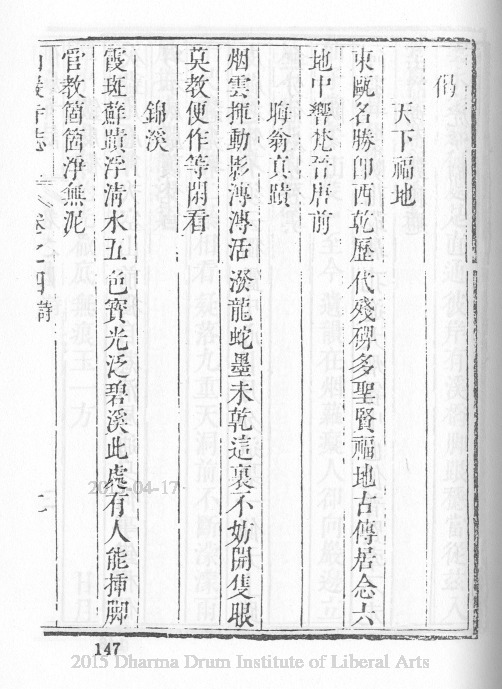 偈
天下福地
東甌名勝卽西乾歷代殘碑多聖賢福地古傳居念六
地中響梵晉唐前
晦翁真蹟
烟雲揮動影漙漙活潑龍蛇墨未乾這裏不妨開隻眼
莫教便作等閒看
錦溪
霞斑蘚蹟浮清水五色寶光泛碧溪此處有人能揷脚
管教箇箇淨無泥
寺志 卷之四 詩
2015-04-17
147
2015 Dharma Drum Institute of Liberal Arts